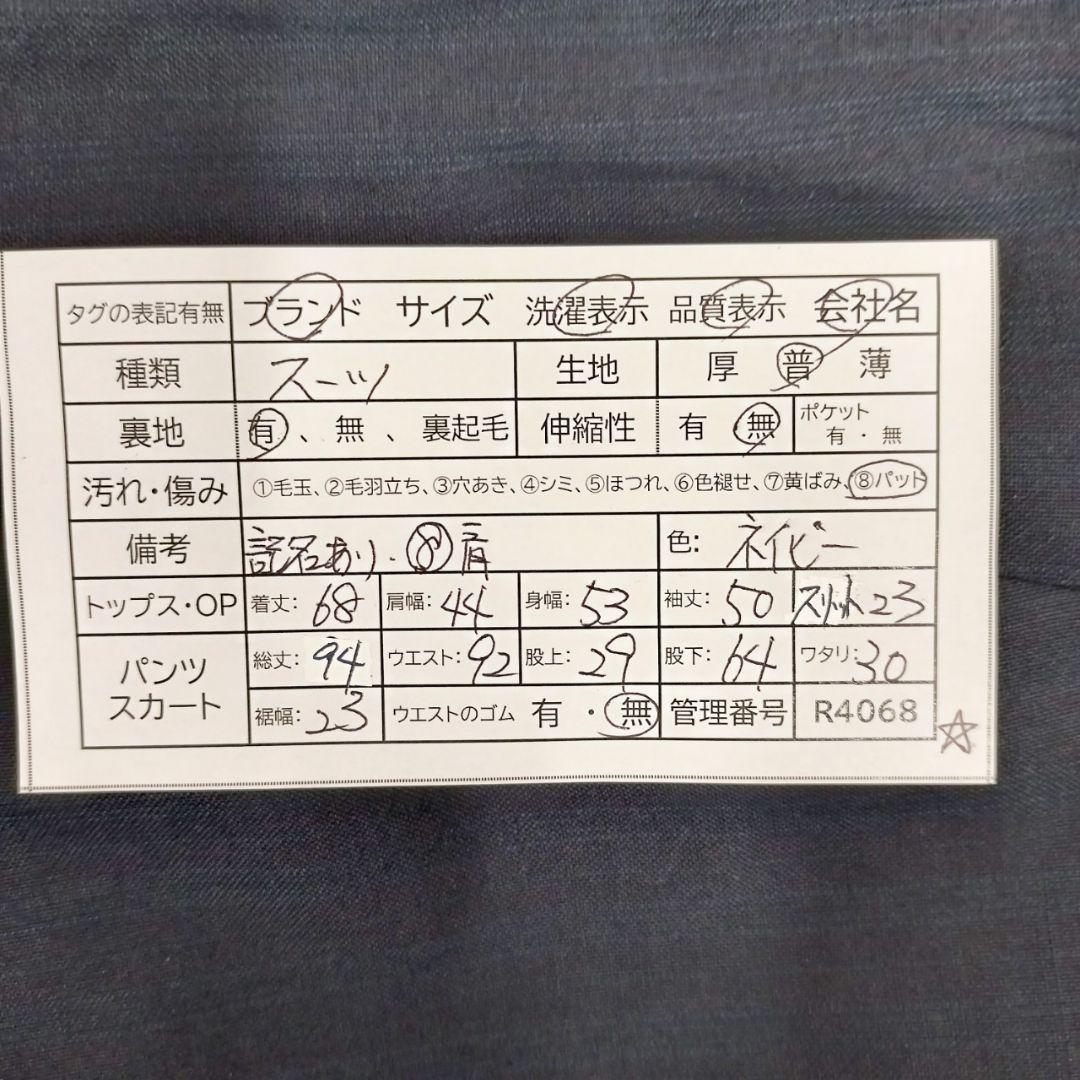 タグの表記有無 ブランド サイズ 洗濯表示 品質表示 会社名
種類 スーツ 生地 厚 普 薄
裏地 有、無、裏起毛 伸縮性 有 無 ポケット 有・無
汚れ・傷み ①毛玉、②毛羽立ち、③穴あき、④シミ、⑤ほつれ、⑥色褪せ、⑦黄ばみ、⑧パット
備考 記名あり.⑧肩 色: ネイビー
トップス・OP 着丈: 68 肩幅: 44 身幅: 53 袖丈: 50 スリット23
パンツ スカート 総丈: 94 ウエスト: 92 股上: 29 股下: 64 ワタリ: 30
裾幅: 23 ウエストのゴム 有・無 管理番号 R4068